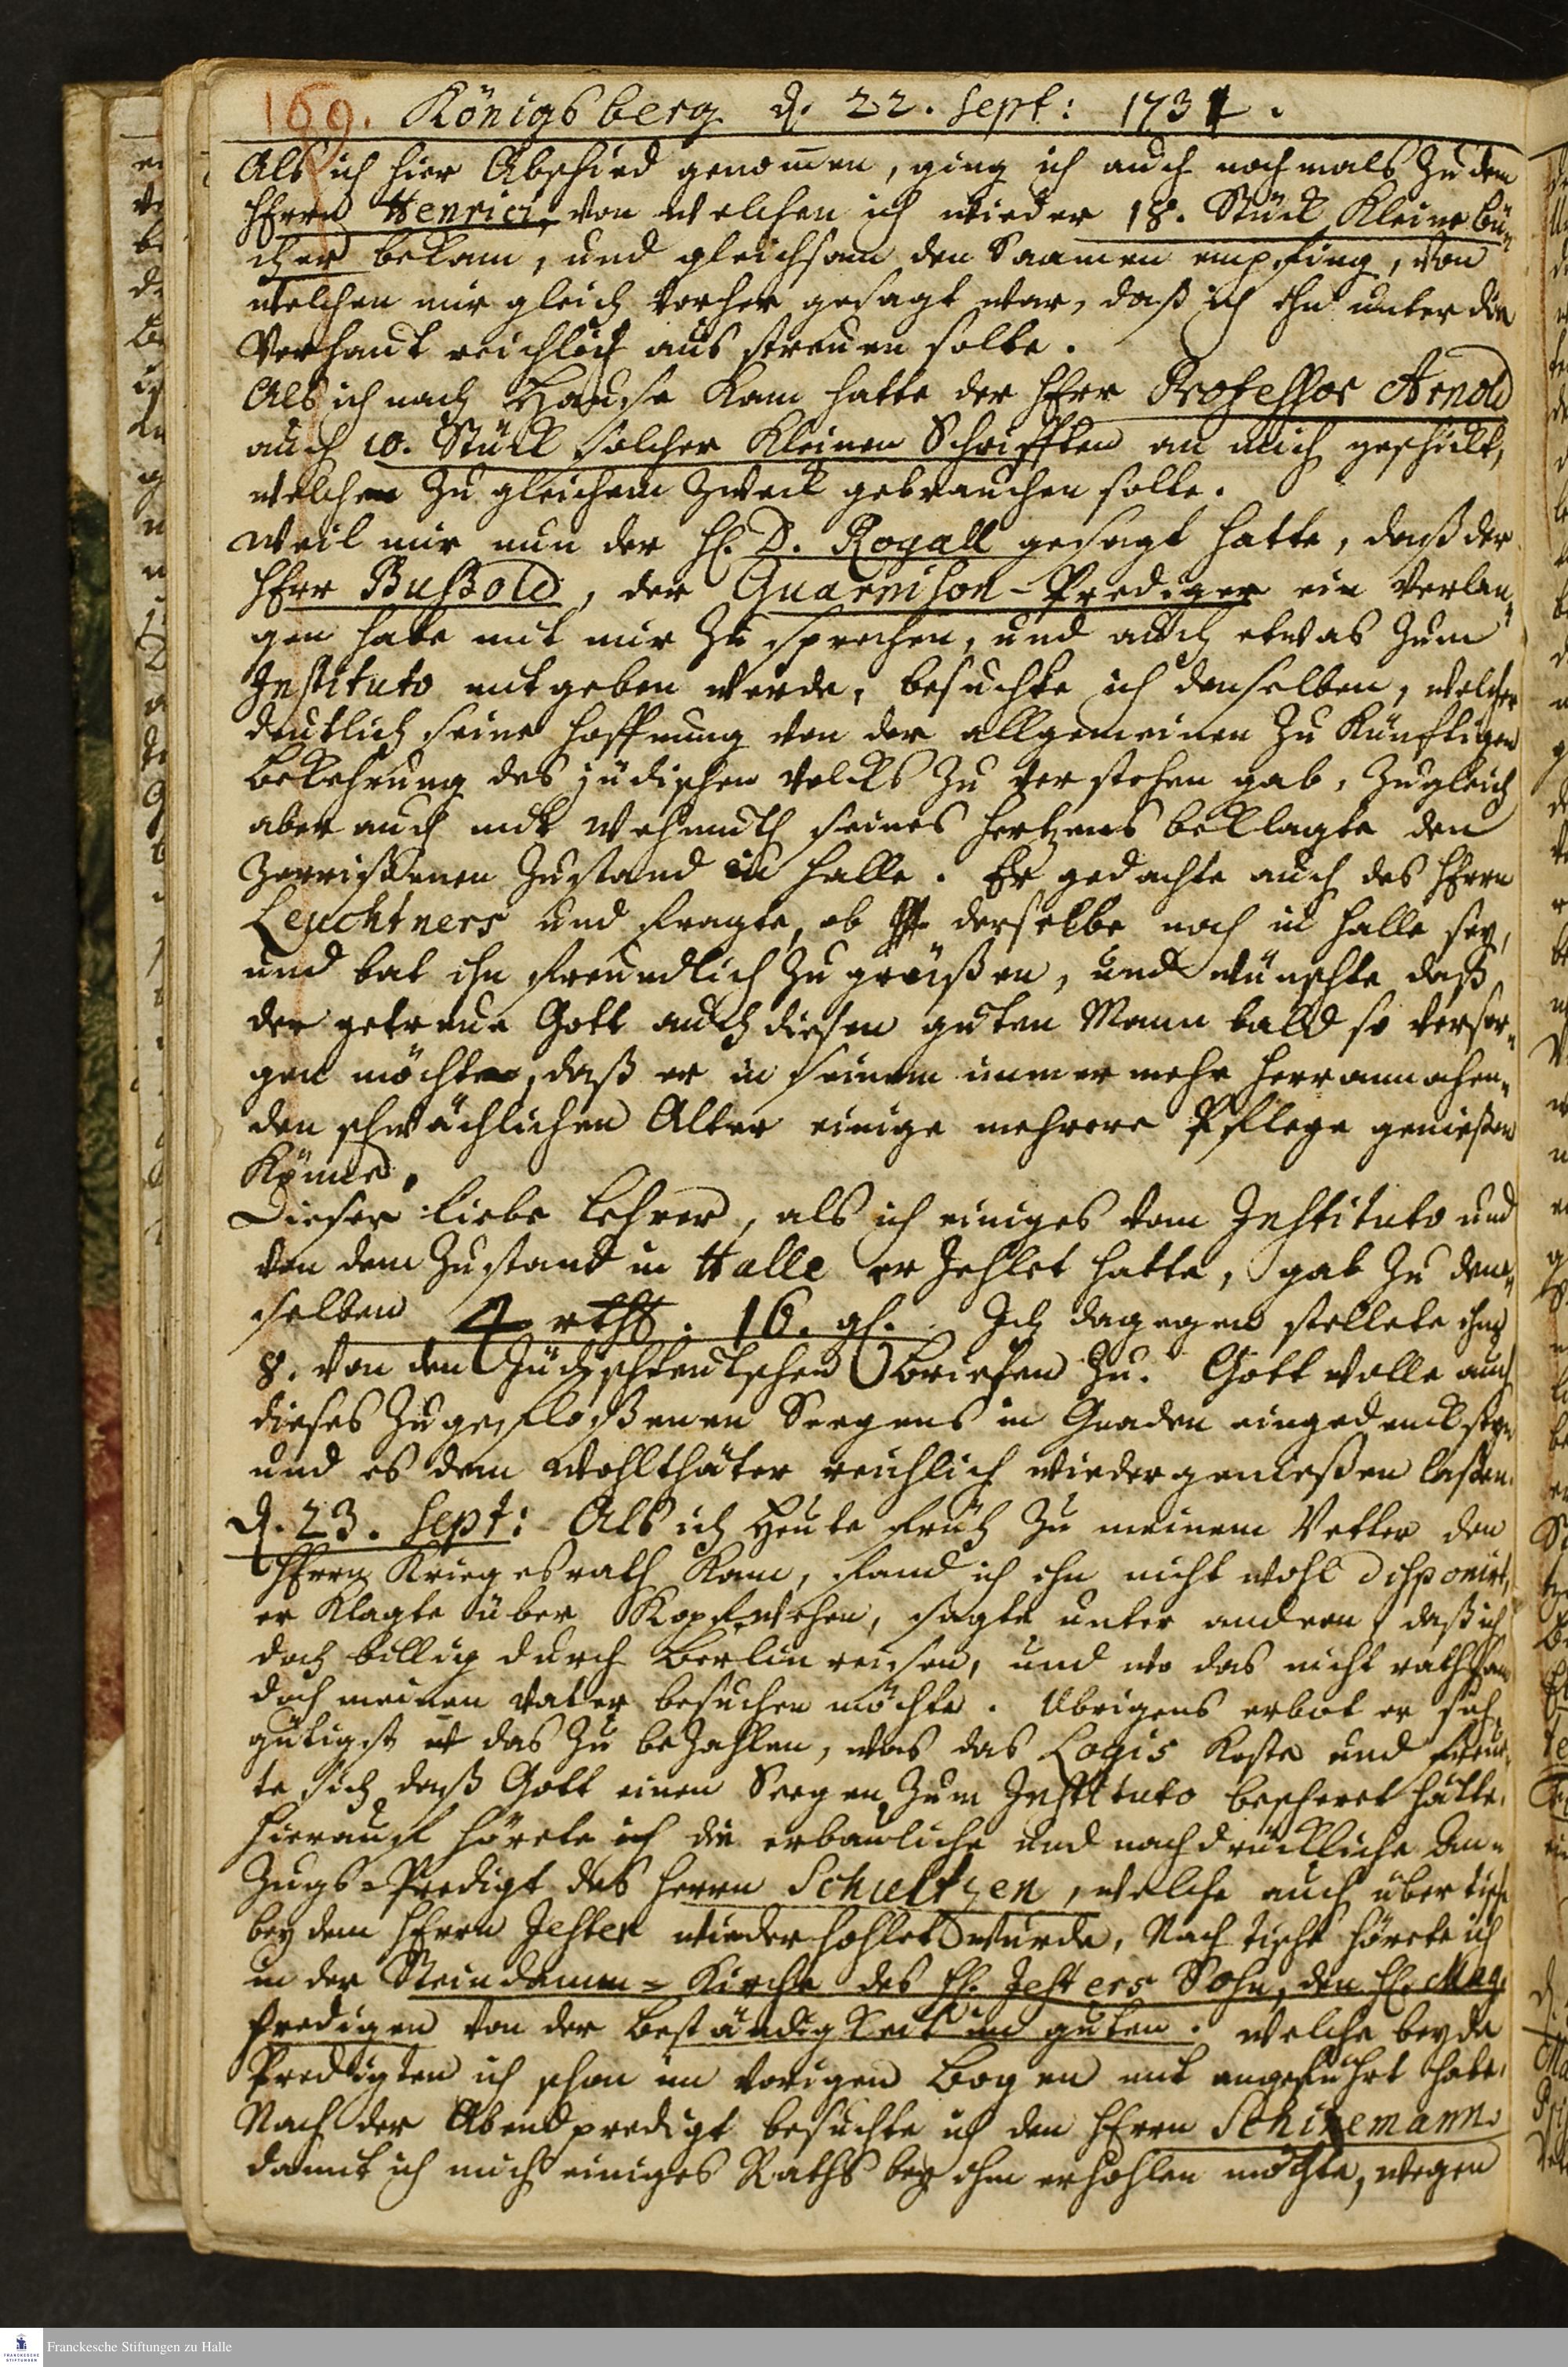 169. Königsberg d. 22. Sept: 1731.
Als ich hier Abschied genommen, ging ich auch nochmals zu dem
HErrn Henrici, von welchen ich wieder 18. Stück Kleine bü-
cher bekam, und gleichsam den Saamen empfing, von
welchen mir gleich vorher gesagt war, daß ich ihn unter die
Verhaut reichlich aus streuen solte.
Als ich nach Hause kam hatte der HErr Professor Arnold
auch 10. Stück solcher Kleinen Schrifften an mich geschickt,
welche zu gleichem Zweck gebrauchen solle.
Weil mir nun der H. D. Rogall gesagt hatte, daß der
HErr Bußold, der Guarnison-Prediger ein verlan-
gen habe mit mir zu sprechen, und auch etwas zum
Instituto mitgeben werde, besuchte ich denselben, welcher
deutlich seine Hoffnung von der allgemeinen zu Künftigen
bekehrung des jüdischen volcks zu verstehen gab, zugleich
aber auch mit Wehmuth seines Hertzens beklagte den
zerrißenen Zustand in Halle. Er gedachte auch des HErrn
Leuchtners und fragte, ob derselbe noch in Halle sey,
und bat ihn freundlich zu grüißen, und wünschte daß
der getreue Gott auch diesen guten Mann bald so versor-
gen möchte, daß er in seinem immer mehr herrannahen-
den schwächlichen Alter einige mehrere Pflege genießen
Könne.
Dieser liebe Lehrer, als ich einiges vom Instituto und
von dem Zustand in Halle erzehlet hatte, gab zu dem-
selben 4 rthl. 16. gl. Ich dagegen stellete ihm
8. von den Jüdischteutschen briefen zu. Gott wolle auch
dieses zugefloßenen Seegens in Gnaden eingedenck seyn
und es dem Wohlthäter reichlich wieder genießen laßen.
d. 23. Sept: Als ich Heute früh zu meinem Vetter den
HErrn Kriegesrath kam, fand ich ihn nicht wohl disponirt,
er klagte über Kopfwehen, sagte unter andern, daß ich
doch billig durch Berlin reisen, und wo das nicht rathsam
doch meinen vater besuchen möchte. Übrigens erbot er sich
gütigst das zu bezahlen, was das Logis koste und freue-
te sich daß Gott einen Seegen zum Instituto bescheret hätte.
Hierauf hörete ich die erbauliche und nachdrückliche An-
zugs-Predigt des Herrn Schultzen, welche auch über tisch
bey dem HErrn Jester wiederhohlet wurde, Nach tische hörete ich
in der Steindamm-Kirche des H. Jesters Sohn, den H. Mag.
predigen von der beständigkeit im guten. welche beyde
Predigten ich schon im vorigen bogen mit angeführt habe.
Nach der Abendpredigt besuchte ich den HErrn Schinemann
damit ich mich einiges Raths bey ihm erhohlen möchte, wegen
Franckesche Stiftungen zu Halle